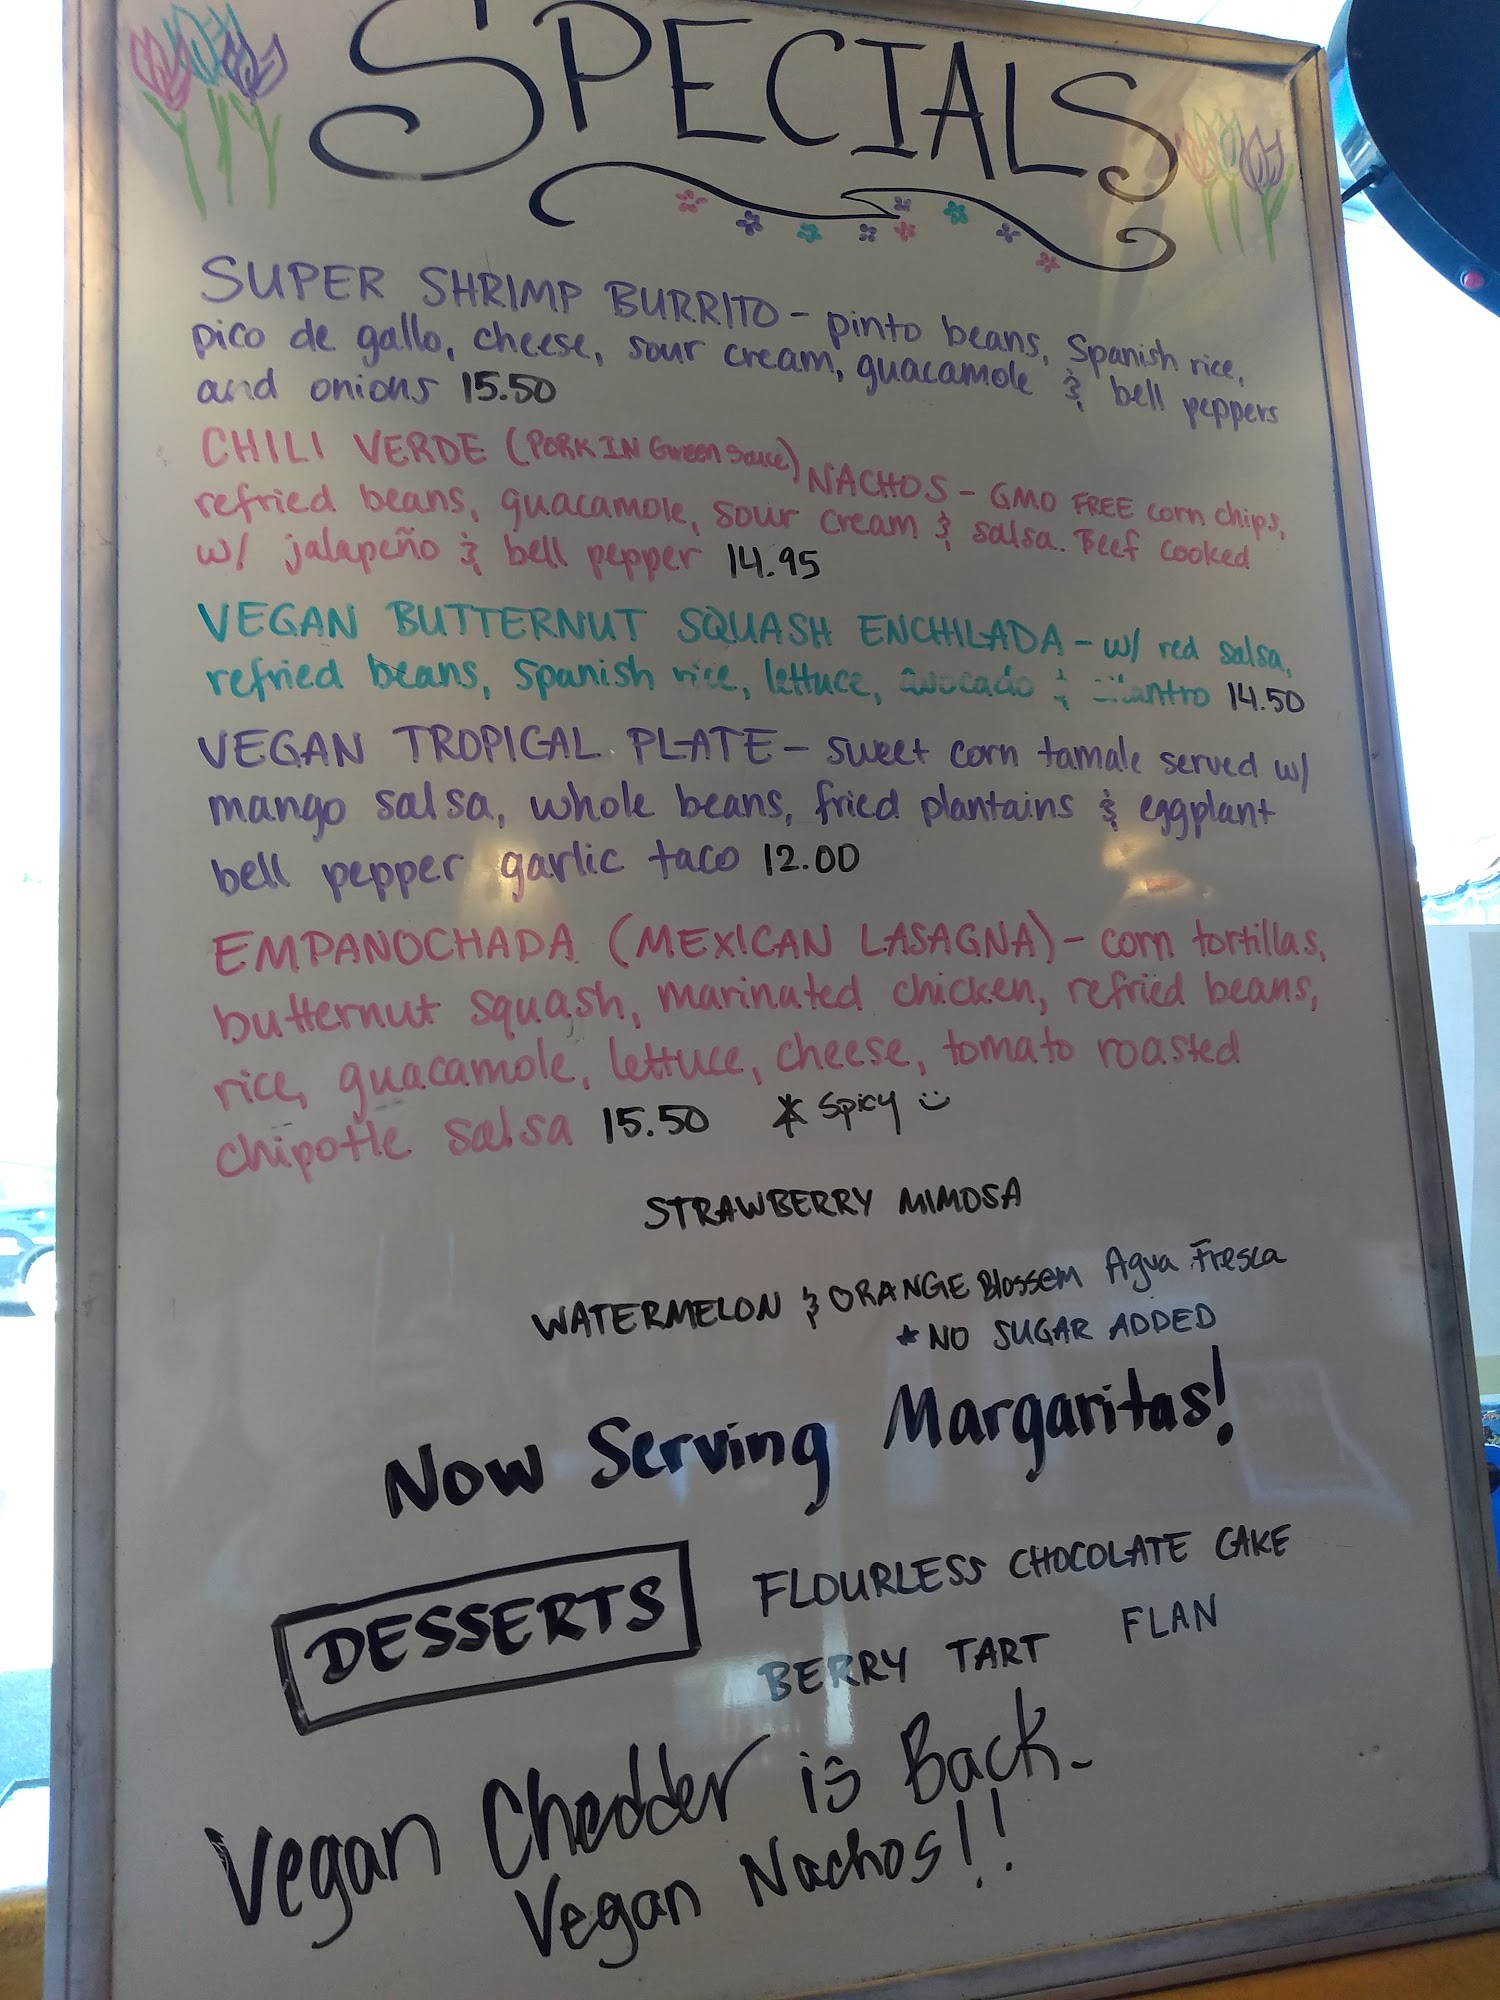 SPECIALS
SUPER SHRIMP BURRITO - pinto beans, Spanish rice,
pico de gallo, cheese, sour cream, guacamole & bell peppers
and onions 15.50
CHILI VERDE (PORK IN Green Sauce) NACHOS - GMO FREE corn chips,
refried beans, guacamole, sour cream & salsa. Beef cooked
w/ jalapeño & bell pepper 14.95
VEGAN BUTTERNUT SQUASH ENCHILADA - w/ red salsa,
refried beans, Spanish rice, lettuce, avocado & cilantro 14.50
VEGAN TROPICAL PLATE - sweet corn tamale served w/
mango salsa, whole beans, fried plantains & eggplant
bell pepper garlic taco 12.00
EMPANOCHADA (MEXICAN LASAGNA) - corn tortillas,
butternut squash, marinated chicken, refried beans,
rice, guacamole, lettuce, cheese, tomato roasted
chipotle salsa 15.50 * Spicy
STRAWBERRY MIMOSA
WATERMELON & ORANGE Blossem Agua Fresca
* NO SUGAR ADDED
Now Serving Margaritas!
DESSERTS
FLOURLESS CHOCOLATE CAKE
BERRY TART FLAN
Vegan Chedder is Back-
Vegan Nachos!!